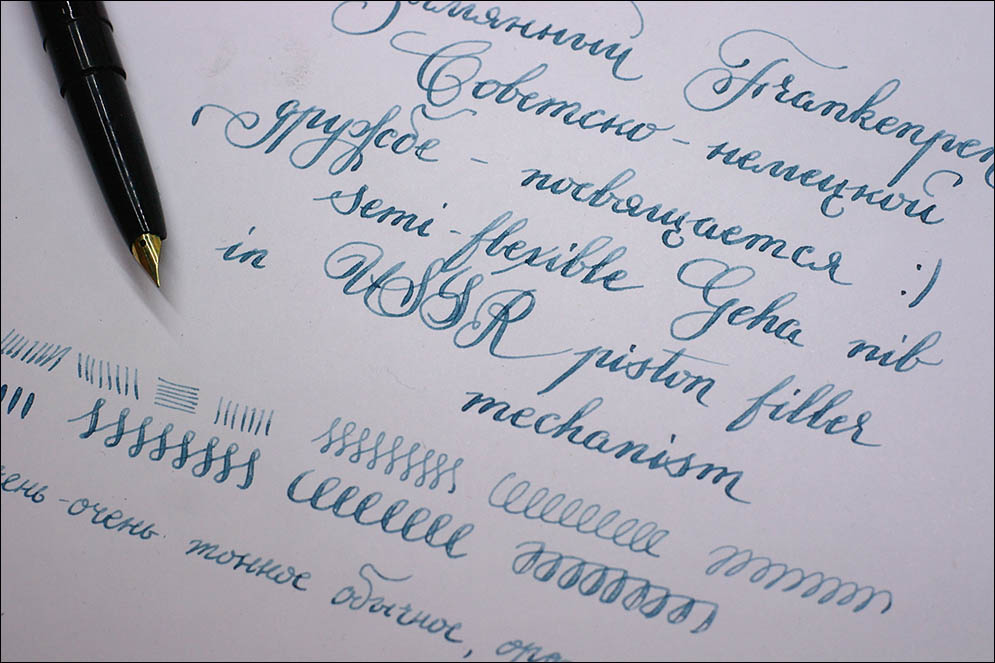 Frankenpen
Советсно - немецкой
дружбе - посвящается :)
semi-flexible Geha nib
in USSR piston filler
mechanism
очень-очень тонкое обычное,